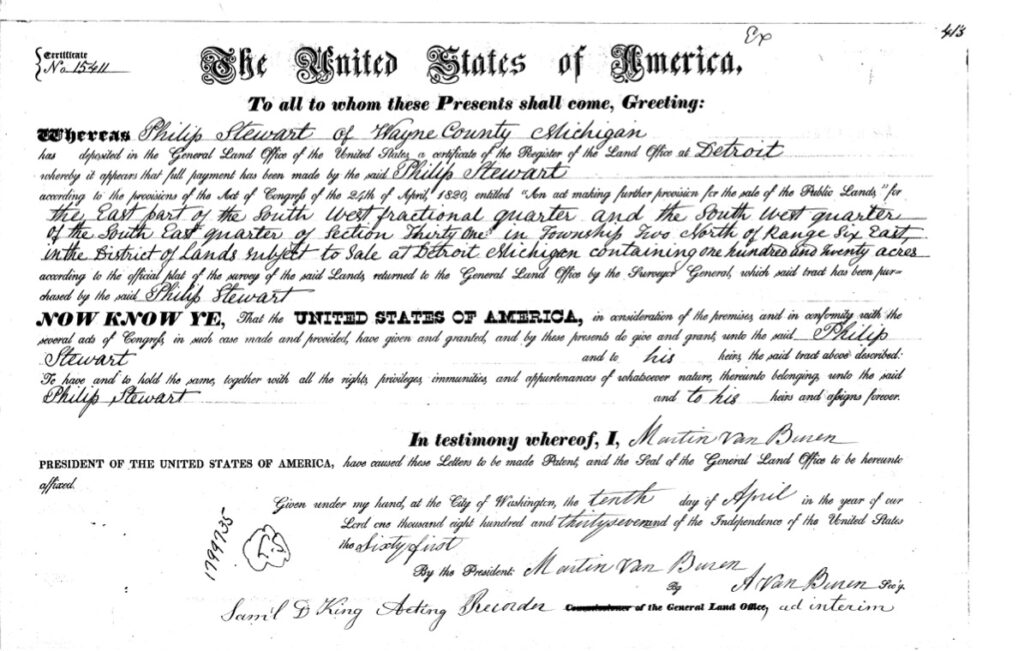 Ex
413
Certificate
No. 15411
The United States of America,
To all to whom these Presents shall come, Greeting:
Whereas Philip Stewart of Wayne County Michigan
has deposited in the General Land Office of the United States, a certificate of the Register of the Land Office at Detroit
whereby it appears that full payment has been made by the said Philip Stewart
according to the provisions of the Act of Congress of the 24th of April, 1820, entitled "An act making further provision for the sale of the Public Lands," for
the East part of the South West fractional quarter and the South West quarter
of the South East quarter of Section Thirty One in Township Two North of Range Six East,
in the District of Lands subject to Sale at Detroit Michigan containing one hundred and twenty acres
according to the official plat of the survey of the said Lands, returned to the General Land Office by the Surveyor General, which said tract has been pur-
chased by the said Philip Stewart
NOW KNOW YE, That the UNITED STATES OF AMERICA, in consideration of the premises, and in conformity with the
several acts of Congress, in such case made and provided, have given and granted, and by these presents do give and grant, unto the said Philip
Stewart and to his heirs, the said tract above described:
To have and to hold the same, together with all the rights, privileges, immunities, and appurtenances of whatsoever nature, thereunto belonging, unto the said
Philip Stewart and to his heirs and assigns forever.
In testimony whereof, I, Martin Van Buren
PRESIDENT OF THE UNITED STATES OF AMERICA, have caused these Letters to be made Patent, and the Seal of the General Land Office to be hereunto
affixed.
Given under my hand, at the City of Washington, the tenth day of April in the year of our
Lord one thousand eight hundred and thirty seven and of the Independence of the United States
the Sixty first
1799735
By the President: Martin Van Buren
By A Van Buren Sec'y.
Sam'l D King Acting Recorder Commissioner of the General Land Office, ad interim